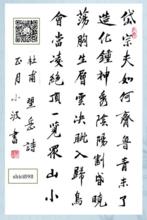 岱宗夫如何齊魯青未了
造化鍾神秀陰陽割昏曉
蕩胸生層雲決眥入歸鳥
會當凌絕頂一覽眾山小
杜甫望岳詩
正月小波書